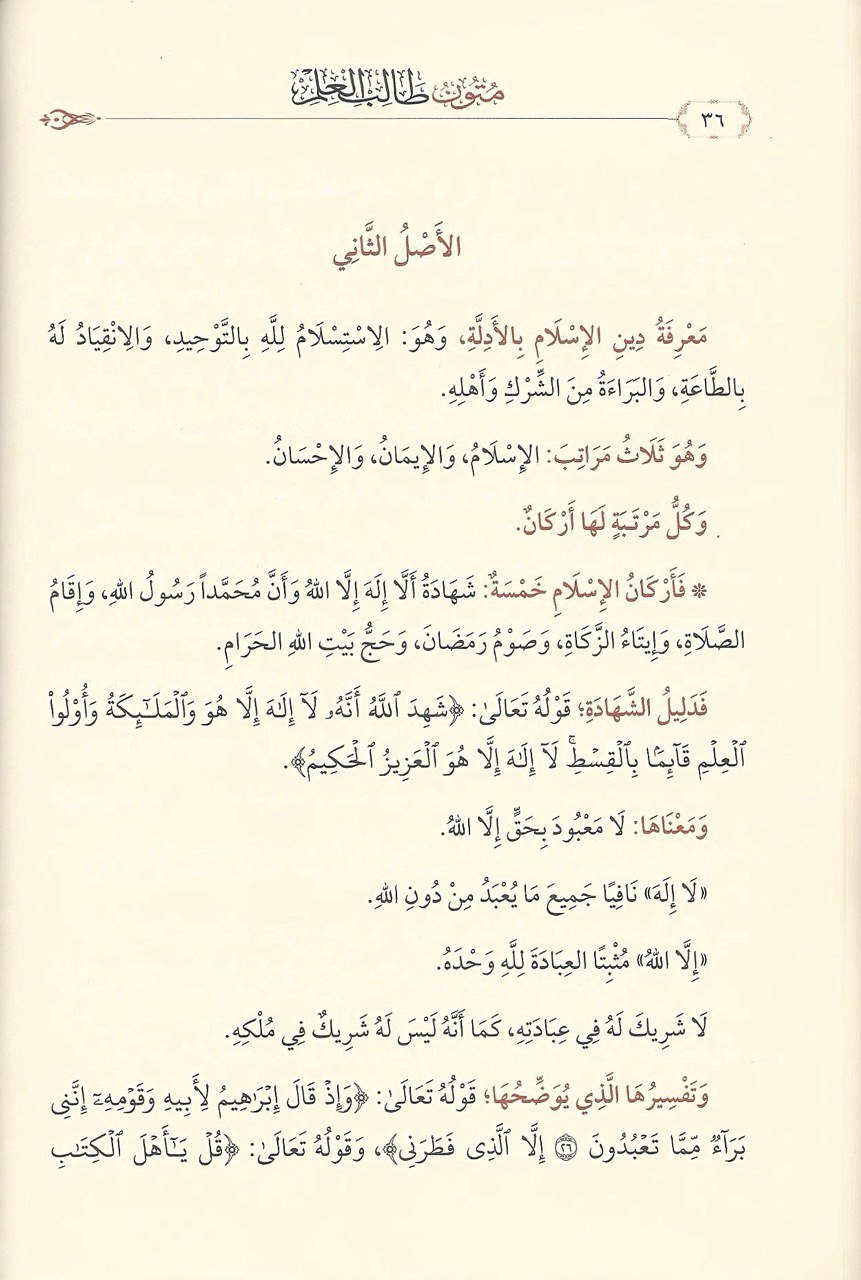 مُتُونُ طَالِبِ الْعِلْمِ
٣٦
الأَصْلُ الثَّانِي
مَعْرِفَةُ دِينِ الإِسْلَامِ بِالأَدِلَّةِ، وَهُوَ: الِاسْتِسْلَامُ لِلَّهِ بِالتَّوْحِيدِ، وَالِانْقِيَادُ لَهُ
بِالطَّاعَةِ، وَالبَرَاءَةُ مِنَ الشِّرْكِ وَأَهْلِهِ.
وَهُوَ ثَلَاثُ مَرَاتِبَ: الإِسْلَامُ، وَالإِيمَانُ، وَالإِحْسَانُ.
وَكُلُّ مَرْتَبَةٍ لَهَا أَرْكَانٌ.
* فَأَرْكَانُ الإِسْلَامِ خَمْسَةٌ: شَهَادَةُ أَلَّا إِلَهَ إِلَّا اللهُ وَأَنَّ مُحَمَّداً رَسُولُ اللهِ، وَإِقَامُ
الصَّلَاةِ، وَإِيتَاءُ الزَّكَاةِ، وَصَوْمُ رَمَضَانَ، وَحَجُّ بَيْتِ اللهِ الحَرَامِ.
فَدَلِيلُ الشَّهَادَةِ؛ قَوْلُهُ تَعَالَىٰ: ﴿شَهِدَ ٱللَّهُ أَنَّهُۥ لَآ إِلَٰهَ إِلَّا هُوَ وَٱلْمَلَٰٓئِكَةُ وَأُوْلُواْ
ٱلْعِلْمِ قَآئِمًۢا بِٱلْقِسْطِۚ لَآ إِلَٰهَ إِلَّا هُوَ ٱلْعَزِيزُ ٱلْحَكِيمُ﴾.
وَمَعْنَاهَا: لَا مَعْبُودَ بِحَقٍّ إِلَّا اللهُ.
«لَا إِلَهَ» نَافِيًا جَمِيعَ مَا يُعْبَدُ مِنْ دُونِ اللهِ.
«إِلَّا اللهُ» مُثْبِتًا العِبَادَةَ لِلَّهِ وَحْدَهُ.
لَا شَرِيكَ لَهُ فِي عِبَادَتِهِ، كَمَا أَنَّهُ لَيْسَ لَهُ شَرِيكٌ فِي مُلْكِهِ.
وَتَفْسِيرُهَا الَّذِي يُوَضِّحُهَا؛ قَوْلُهُ تَعَالَىٰ: ﴿وَإِذْ قَالَ إِبْرَٰهِيمُ لِأَبِيهِ وَقَوْمِهِۦٓ إِنَّنِى
بَرَآءٌ مِّمَّا تَعْبُدُونَ ۝٢٦ إِلَّا ٱلَّذِى فَطَرَنِى﴾، وَقَوْلُهُ تَعَالَىٰ: ﴿قُلْ يَٰٓأَهْلَ ٱلْكِتَٰبِ